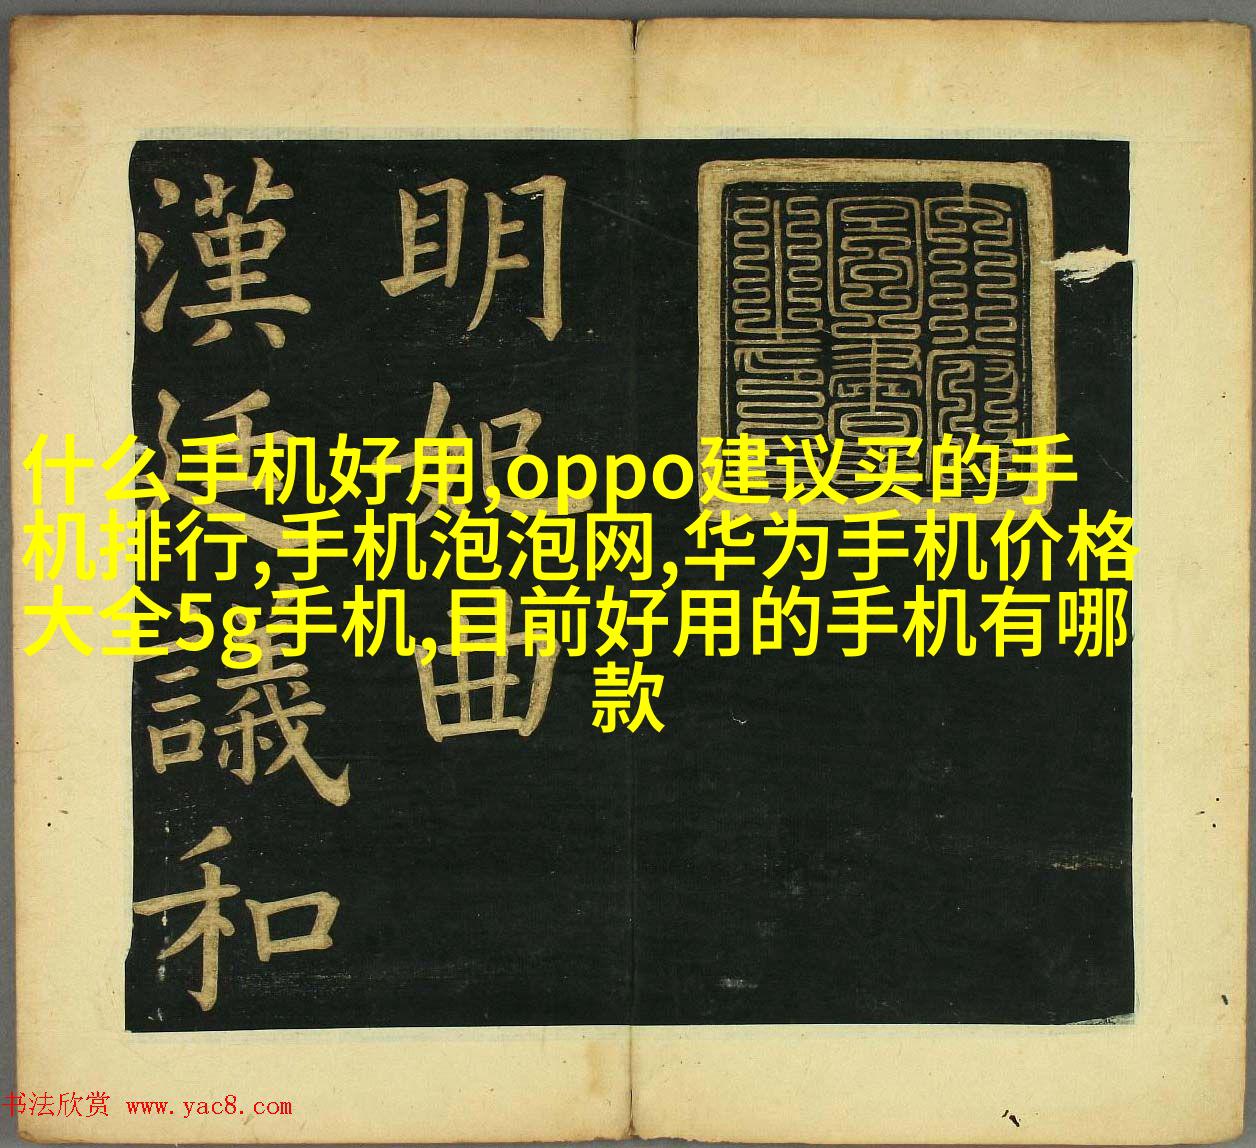 明妃曲
漢廷議和
什么手机好用,oppo建议买的手
机排行,手机泡泡网,华为手机价格
大全5g手机,目前好用的手机有哪
款
书法欣赏 www.yac8.com